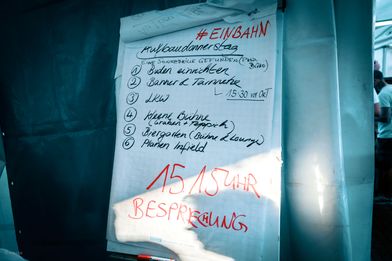 #EINBAHN
Aufbaudonnerstag
EINE STECKRÜBE GEFUNDEN
① Boden einrichten
② Banner & Tarnnetze
↳ 15:30 vor Ort
③ LKW
④ Kleine Bühne
⑤ Biergarten (Bühne & Lounge)
⑥ Planen Infield
15 15 UHR
BESPRECHUNG